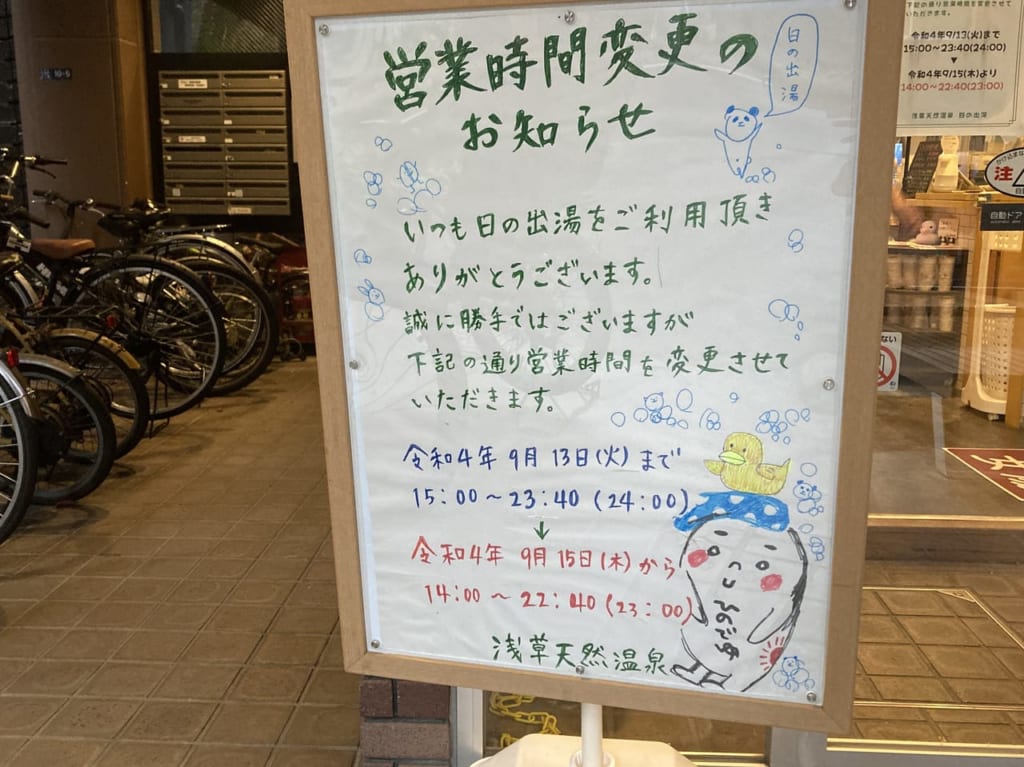 営業時間変更の
お知らせ
日の出湯
いつも日の出湯をご利用頂き
ありがとうございます。
誠に勝手ではございますが
下記の通り営業時間を変更させて
いただきます。
令和4年 9月13日(火)まで
15:00～23:40(24:00)
↓
令和4年 9月15日(木)から
14:00～22:40(23:00)
浅草天然温泉
ひのでゆ
下記の通り営業時間を変更させて
いただきます。
令和4年9/13(火)まで
15:00～23:40(24:00)
▼
令和4年9/15(木)より
14:00～22:40(23:00)
浅草天然温泉 日の出湯
注
自動ドア
10-5